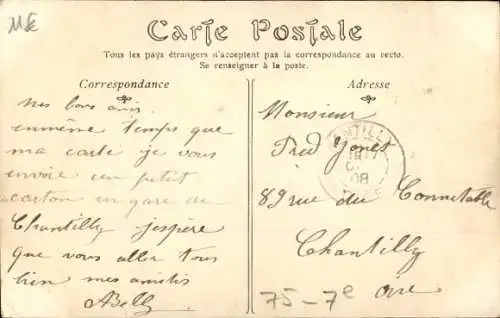 Carte Postale
Tous les pays étrangers n'acceptent pas la correspondance au recto.
Se renseigner à la poste.
Correspondance
Adresse
mes bons amis
en même temps que
ma carte je vous
envoie un petit
carton en gare de
Chantilly j'espère
que vous aller tous
bien mes amitis
Abelly
Monsieur
Fred Jones
89 rue du Connetable
Chantilly
Oise
75-7e